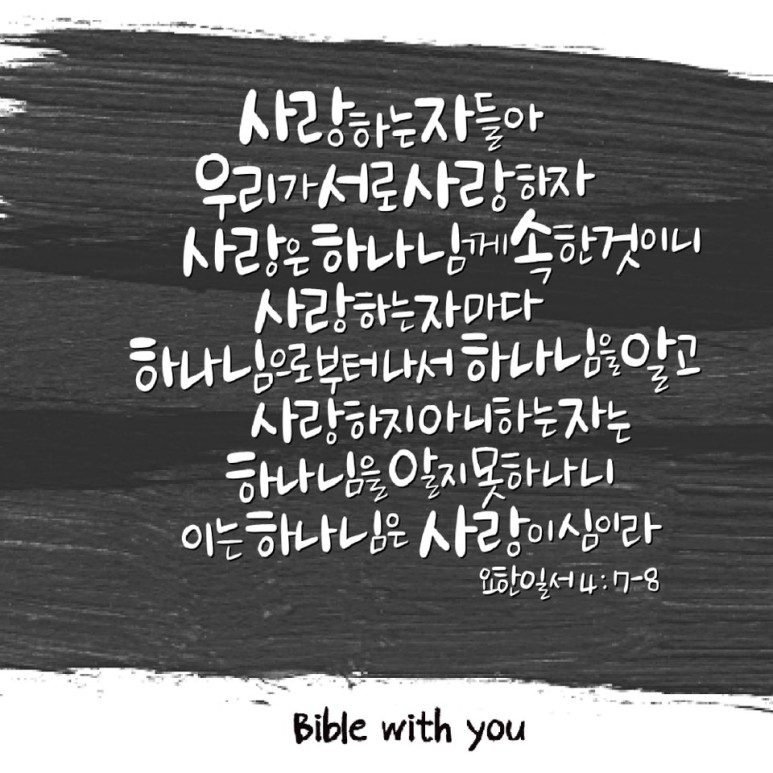 사랑하는자들아
우리가서로사랑하자
사랑은하나님께속한것이니
사랑하는자마다
하나님으로부터나서 하나님을알고
사랑하지아니하는자는
하나님을알지못하나니
이는하나님은 사랑이심이라
요한일서 4:7-8
Bible with you